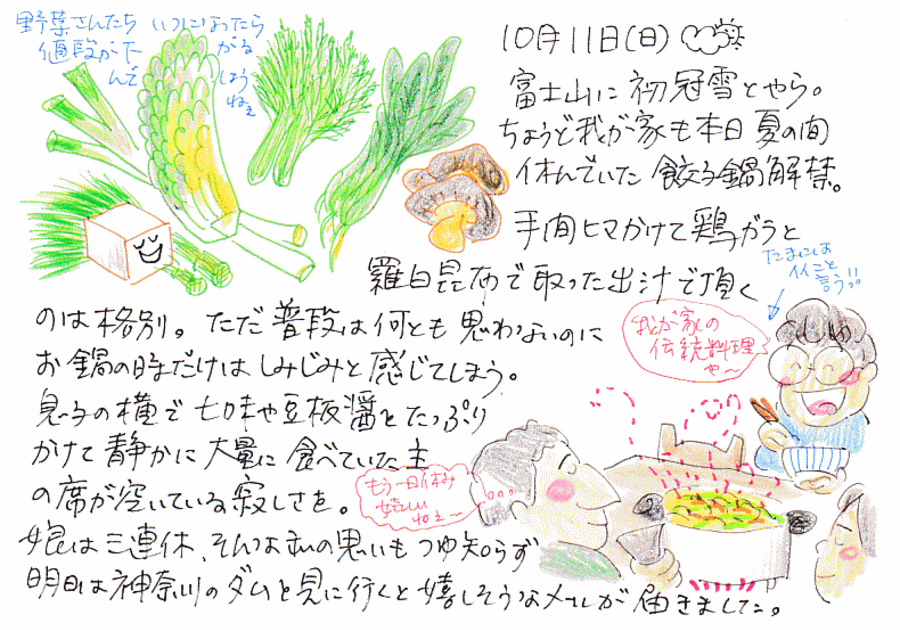 野菜さんたち いつになったら
値段が下がる
んでしょうねぇ
10月11日(日)
富士山に初冠雪とやら。
ちょうど我が家も本日夏の間
休んでいた餃子鍋解禁。
手間ヒマかけて鶏がらと
羅臼昆布で取った出汁で頂く
のは格別。ただ普段は何とも思わないのに
お鍋の時だけはしみじみと感じてしまう。
息子の横で七味や豆板醤をたっぷり
かけて静かに大量に食べていた主
の席が空いている寂しさを。
娘は三連休、そんな私の思いもつゆ知らず
明日は神奈川のダムを見に行くと嬉しそうなメールが届きました。
たまには
イイこと
言う!!
我が家の
伝統料理
や〜
もう一日休み
嬉しい
ねぇ〜